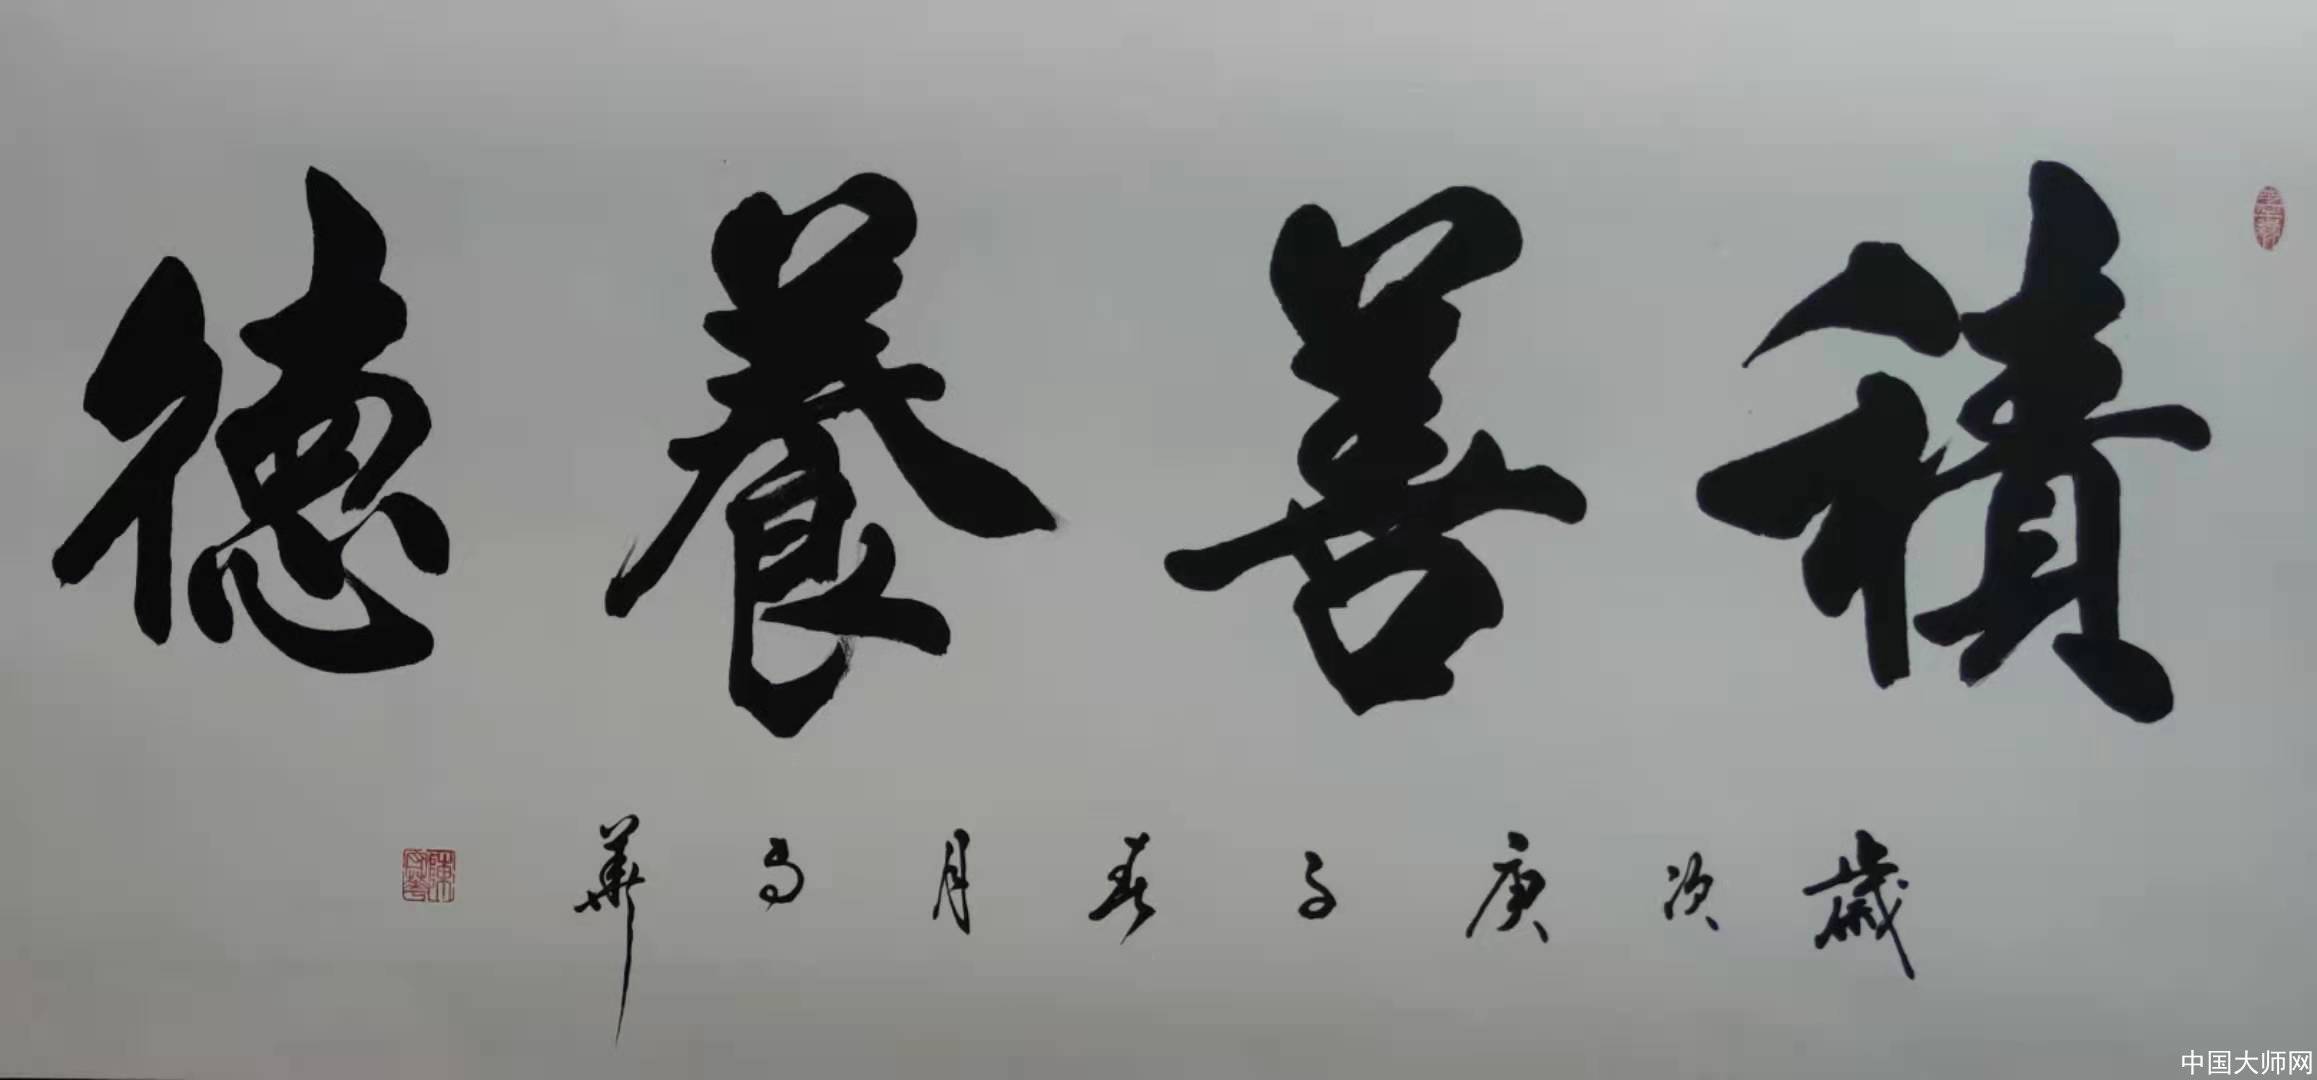 積善養德
歲次庚子春月方華
中国大师网